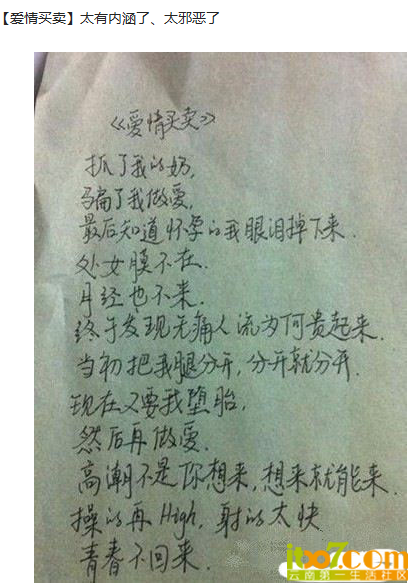 【爱情买卖】太有内涵了、太邪恶了
《爱情买卖》
抓了我的奶,
骗了我做爱,
最后知道怀孕的我眼泪掉下来.
处女膜不在.
月经也不来.
终于发现无痛人流为何贵起来.
当初把我腿分开,分开就分开.
现在又要我堕胎,
然后再做爱.
高潮不是你想来,想来就能来.
操的再High,射的太快
青春不回来.
itx07.com
云南第一生活社区